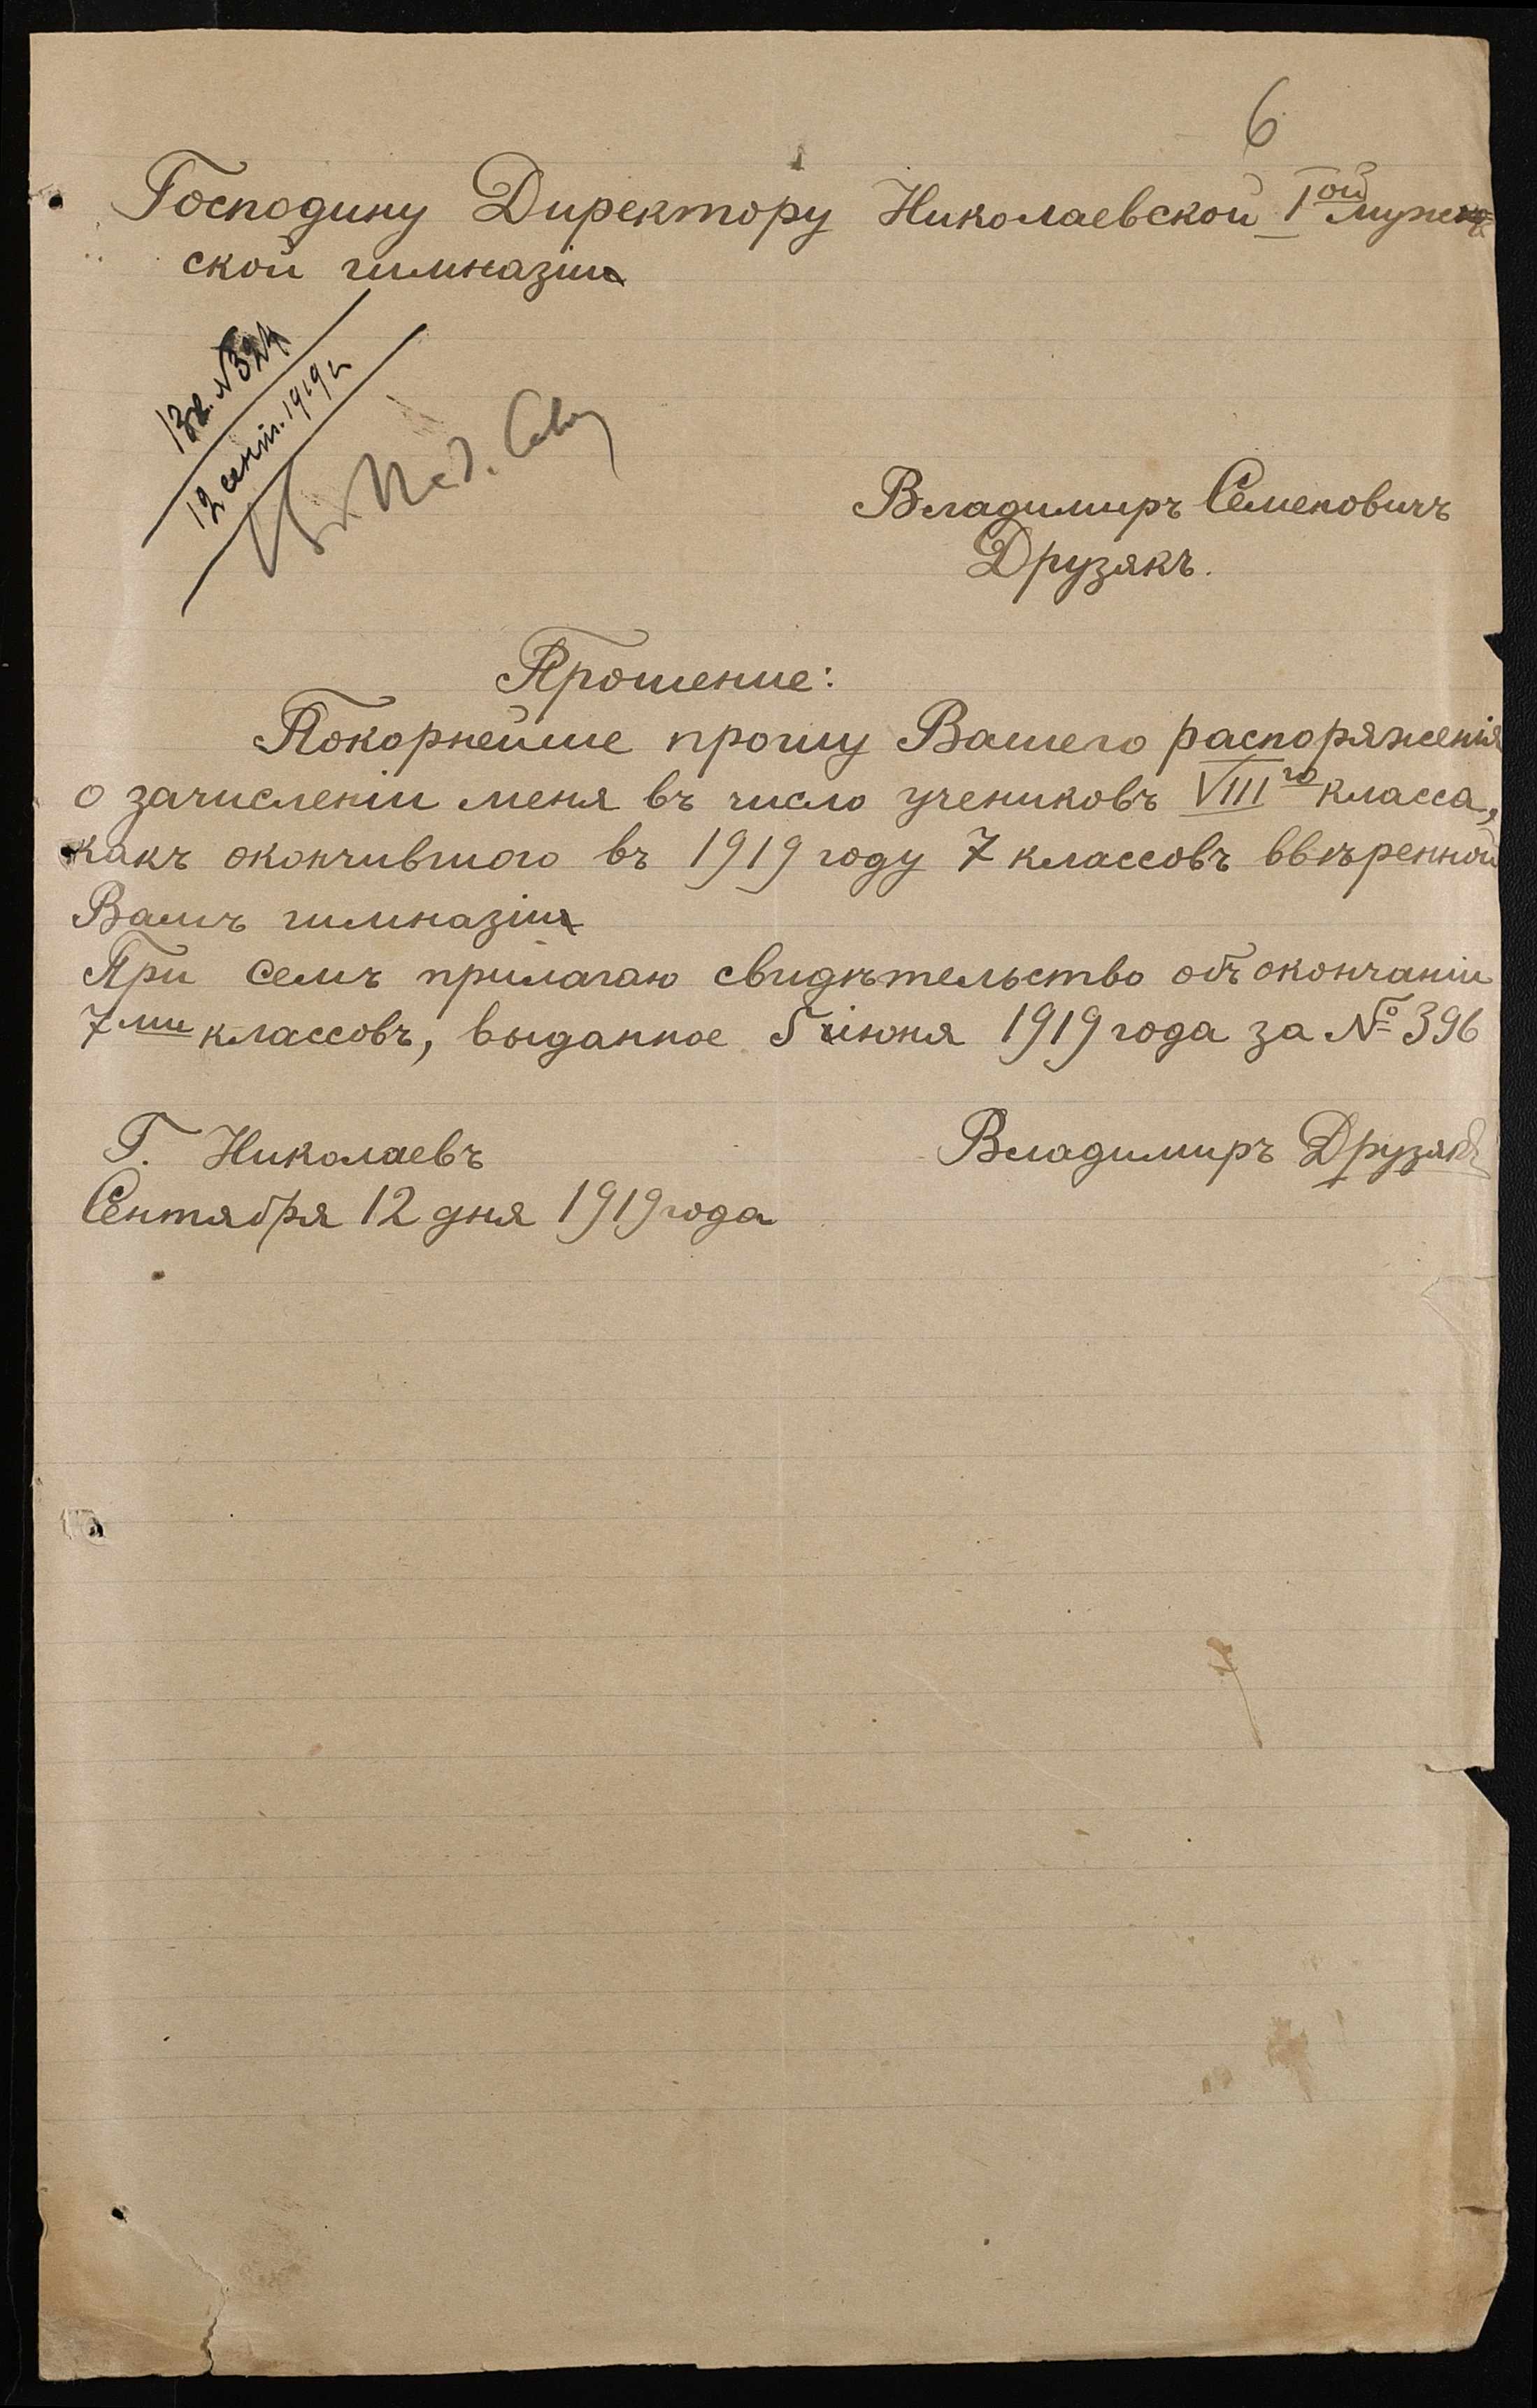 6
Господину Директору Николаевской I ой муж-
ской гимназіи
Вх. №324
12 сент. 1919 г
Пед. Сов
Владимиръ Семеновичъ
Друзякъ.
Прошение:
Покорнейше прошу Вашего распоряженія
о зачисленіи меня въ число учениковъ VIII го класса,
какъ окончившого въ 1919 году 7 классовъ ввѣренной
Вамъ гимназіи
При семъ прилагаю свидѣтельство объ окончаніи
7 ми классовъ, выданное 5 іюня 1919 года за № 396
Г. Николаевъ
Владимиръ Друзякъ
Сентября 12 дня 1919 года